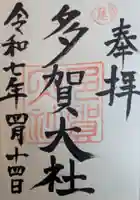 奉拝
多賀大社
令和七年四月十四日